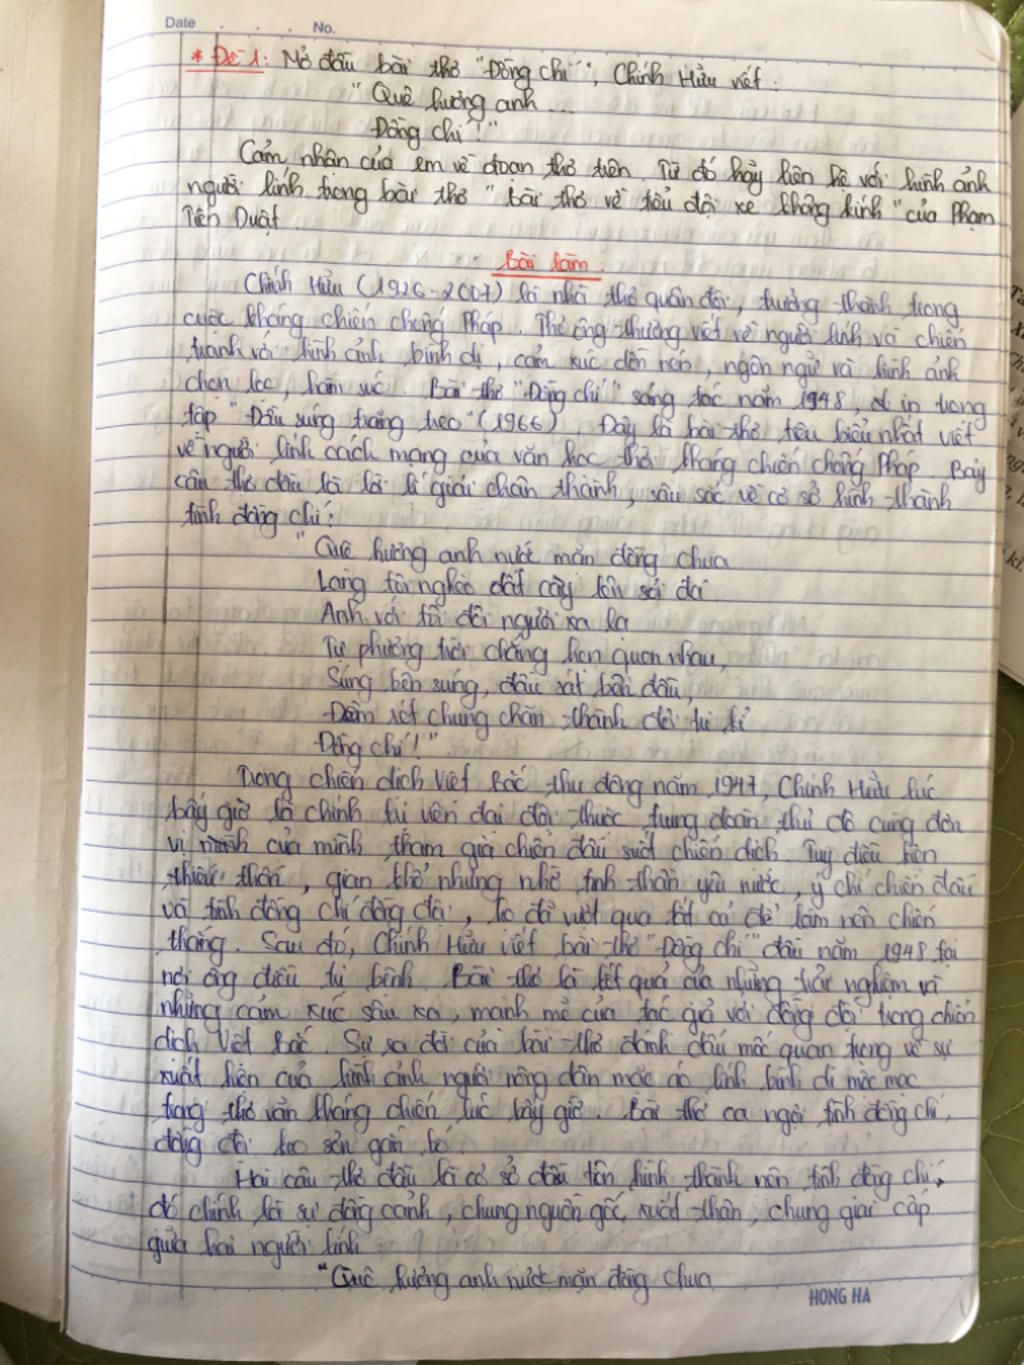 Date . . No.
* Đề 1: Mở đầu bài thơ "Đồng chí", Chính Hữu viết:
"Quê hương anh...
Đồng chí!"
Cảm nhận của em về đoạn thơ trên. Từ đó hãy liên hệ với hình ảnh
người lính trong bài thơ "bài thơ về tiểu đội xe không kính" của Phạm
Tiến Duật.
Bài làm:
Chính Hữu (1926-2007) là nhà thơ quân đội, trưởng thành trong
cuộc kháng chiến chống Pháp. Thơ ông thường viết về người lính và chiến
tranh với hình ảnh bình dị, cảm xúc dồn nén, ngôn ngữ và hình ảnh
chọn lọc, hàm súc. Bài thơ "Đồng chí" sáng tác năm 1948, in trong
tập "Đầu súng trăng treo" (1966). Đây là bài thơ tiêu biểu nhất viết
về người lính cách mạng của văn học thời kháng chiến chống Pháp. Bảy
câu thơ đầu là lời lí giải chân thành, sâu sắc về cơ sở hình thành
tình đồng chí:
"Quê hương anh nước mặn đồng chua
Làng tôi nghèo đất cày lên sỏi đá.
Anh với tôi đôi người xa lạ
Tự phương trời chẳng hẹn quen nhau,
Súng bên súng, đầu sát bên đầu,
Đêm rét chung chăn thành đôi tri kỉ
Đồng chí!".
Trong chiến dịch Việt Bắc thu đông năm 1947, Chính Hữu lúc
bấy giờ là chính trị viên đại đội thuộc trung đoàn thủ đô cùng đơn
vị của mình tham gia chiến đấu suốt chiến dịch. Tuy điều kiện
thiếu thốn, gian khổ nhưng nhờ tinh thần yêu nước, ý chí chiến đấu
và tình đồng chí đồng đội, họ đã vượt qua tất cả để làm nên chiến
thắng. Sau đó, Chính Hữu viết bài thơ "Đồng chí" đầu năm 1948 tại
nơi ông điều trị bệnh. Bài thơ là kết quả của những trải nghiệm và
những cảm xúc sâu xa, mạnh mẽ của tác giả với đồng đội trong chiến
dịch Việt Bắc. Sự ra đời của bài thơ đánh dấu mốc quan trọng về sự
xuất hiện của hình ảnh người nông dân mặc áo lính bình dị mộc mạc
trong thơ văn kháng chiến lúc bấy giờ. Bài thơ ca ngợi tình đồng chí,
đồng đội keo sơn gắn bó.
Hai câu thơ đầu là cơ sở đầu tiên hình thành nên tình đồng chí,
đó chính là sự đồng cảnh, chung nguồn gốc, xuất thân, chung giai cấp
giữa hai người lính.
"Quê hương anh nước mặn đồng chua
HONG HA